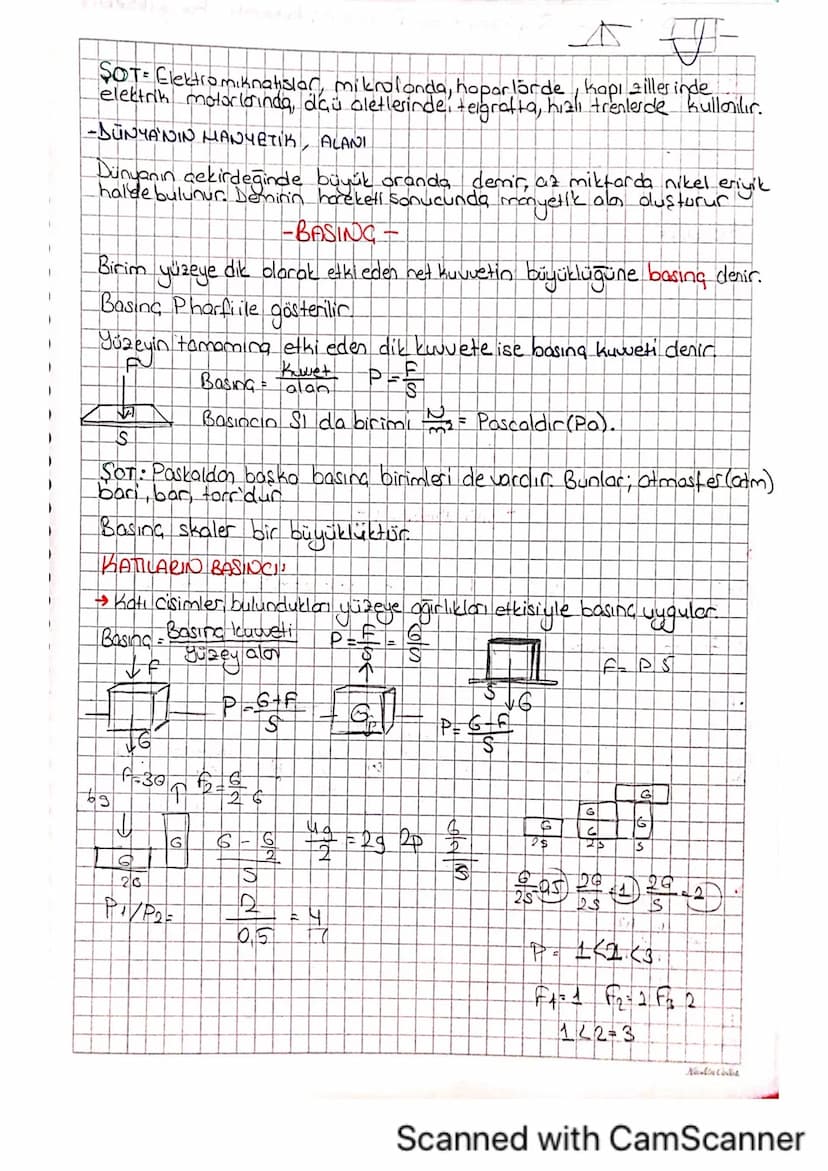 ŞOT= Elektromıknatıslar, mikrolonda, hoparlörde, kapı zillerinde
elektrik motorlarında, ölçü aletlerinde, telgrafta, hızlı trenlerde kullanılır.
-DÜNYA'NIN MANYETİK, ALANI
Dünyanın çekirdeğinde büyük oranda demir, az miktarda nikel eriyik
halde bulunur. Demirin hareketi sonucunda manyetik alan oluşturur
-BASINÇ-
Birim yüzeye dik olarak etki eden net kuvvetin büyüklüğüne basınç denir.
Basınç P harfi ile gösterilir.
Yüzeyin tamamına etki eden dik kuvvete ise basınç kuvveti denir.
F
Basınç = Kuvvet / alan P = F/S
S
Basıncın SI da birimi N/m² = Pascaldır (Pa).
ŞOT: Paskaldan başka basınç birimleri de vardır. Bunlar; atmosfer (atm)
bari, bar, torr'dur
Basınç skaler bir büyüklüktür.
KATILARIN BASINCI:
→ Katı cisimler, bulundukları yüzeye ağırlıkları etkisiyle basınç uygular.
Basınç = Basınç kuvveti / yüzey alan P = F/S = G/S
F = P S
↓F
S ↓G
P = G+F / S
G
P = G-F / S
↓G
F=3G ↑ F₂ = G/2 G
6g
G
G
2G
G - G/2 / S
4g/2 = 2g 2p
G/2 / S
G
G 2S
G G 2S
G S
G/2S = 0,5 2G/2S = 1 2G/S = 2
P₁/P₂ =
2 / 0,5 = 4
P = 1<2<3
F₁=1 F₂=2 F₃ 2
1<2=3
Scanned with CamScanner